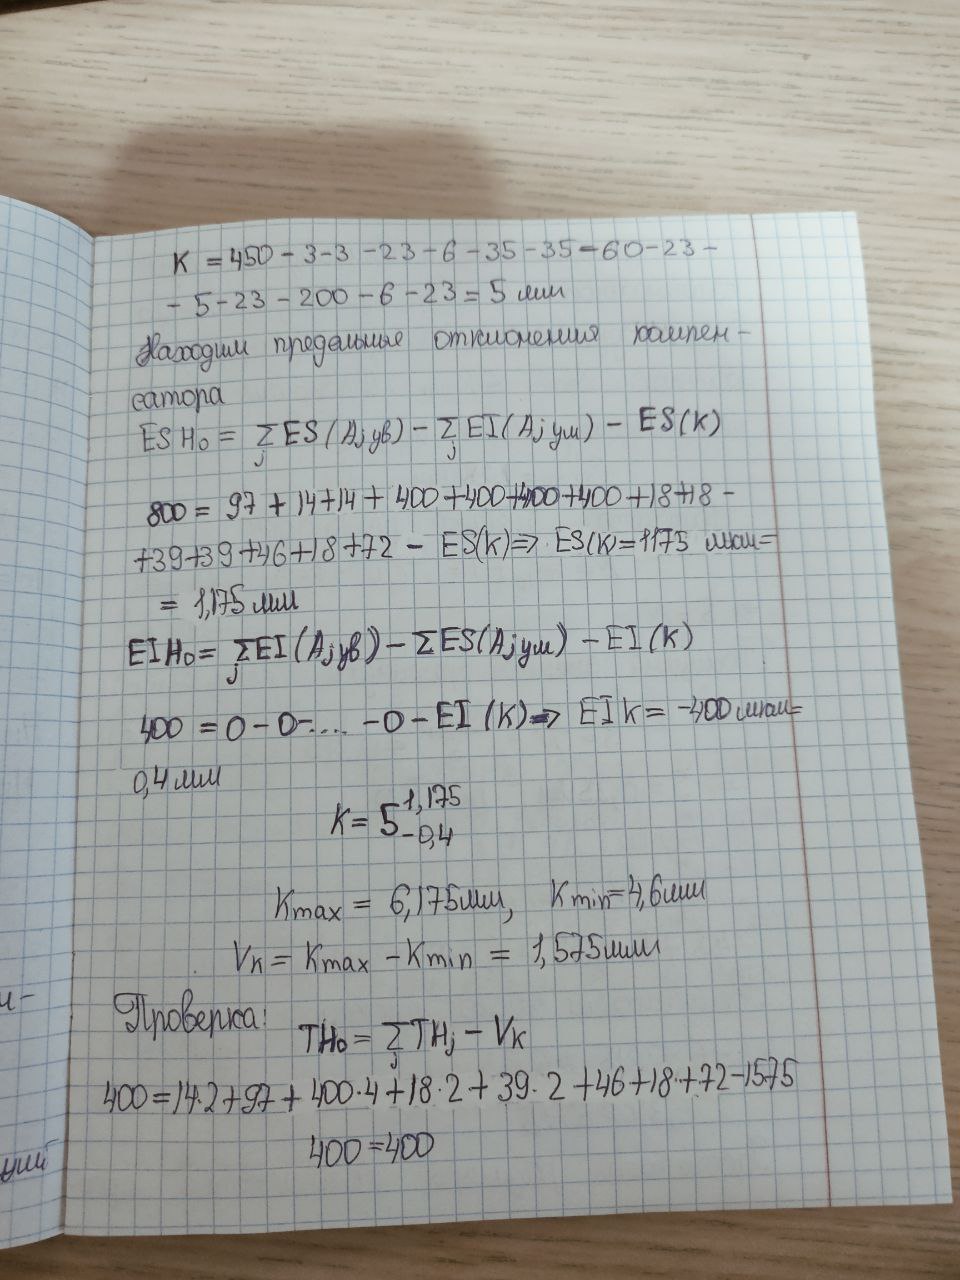 K = 450 - 3 - 3 - 23 - 6 - 35 - 35 - 60 - 23 -
- 5 - 23 - 200 - 6 - 23 = 5 мм
Находим предельные отклонения компен-
сатора
ES H₀ = Σj ES(Aj ув) - Σj EI(Aj ум) - ES(K)
800 = 97 + 14 + 14 + 400 + 400 + 400 + 400 + 18 + 18 -
+ 39 + 39 + 46 + 18 + 72 - ES(K) => ES(K) = 1175 мкм =
= 1,175 мм
EI H₀ = Σj EI(Aj ув) - Σ ES(Aj ум) - EI(K)
400 = 0 - 0 - .... - 0 - EI(K) => EI K = -400 мкм =
0,4 мм
K = 5 1,175 -0,4
Kmax = 6,175 мм, Kmin = 4,6 мм
Vк = Kmax - Kmin = 1,575 мм
и-
Проверка:
TH₀ = Σj THj - Vк
400 = 14·2 + 97 + 400·4 + 18·2 + 39·2 + 46 + 18 + 72 - 1575
400 = 400